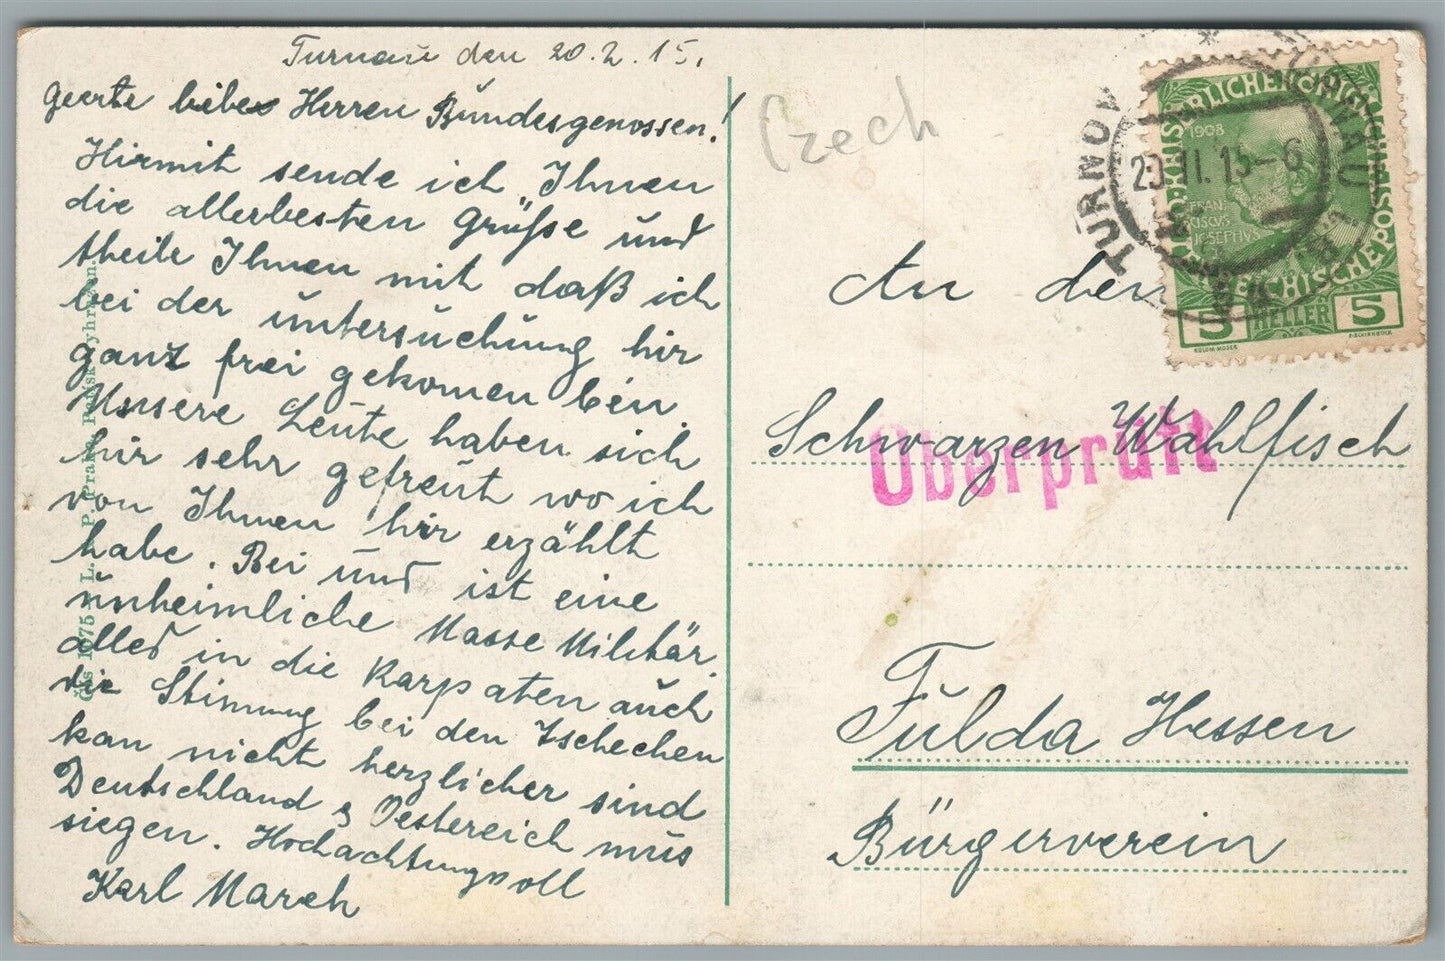 Turnau den 20.2.15.
Geerte liebe Herren Bundesgenossen!
Hirmit sende ich Ihnen
die allerbesten Grüsse und
theile Ihnen mit daß ich
bei der untersuchung hir
ganz frei gekomen bin.
Unsere Leute haben sich
hir sehr gefreut wo ich
von Ihnen hir erzählt
habe. Bei und ist eine
unheimliche Masse Militär
alles in die Karpaten auch
die Stimung bei den Tschechen
kan nicht herzlicher sind
Deutschland & Oestereich mus
siegen. Hochachtungvoll
Karl March
Czech
TURNOV
TURNAU
20.II.15-6
1908
FRAN
CISCVS
JOSEPHVS
5 HELLER 5
KOLOM. MOSER
F. SCHIRNBÖCK
Überprüft
An den
Schwarzen Wahlfisch
Fulda Hessen
Bürgerverein